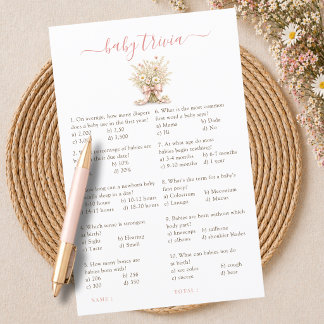 baby trivia
1. On average, how many diapers
does a baby use in the first year?
a) 2,000 b) 2,50
c) 1,500 d) 2,700
percentage of babies are
their due date?
b) 10%
d) 30%
long can a newborn baby
sleep in a day?
hours b) 10-12 hours
-20 hours d) 16-18 hours
Which sense is strongest
birth?
a) Sight b) Hearing
c) Taste d) Smell
5. How many bones are
babies born with?
a) 206 b) 256
c) 300 d) 350
NAME :
6. What is the most common
first word a baby says?
a) Mama b) Dada
c) Hi d) No
7. At what age do most
babies begin teething?
a) 3-4 months b) 6-7 months
c) 9-10 months d) 1 year
8. What's the term for a baby's
first poop?
a) Colostrum b) Meconium
c) Lanugo d) Mucus
9. Babies are born without which
body part?
a) kneecaps b) caffeine
c) elbows d) shoulder blades
10. What can babies not do
at birth?
a) see color b) cough
c) sneeze d) tear
TOTAL :